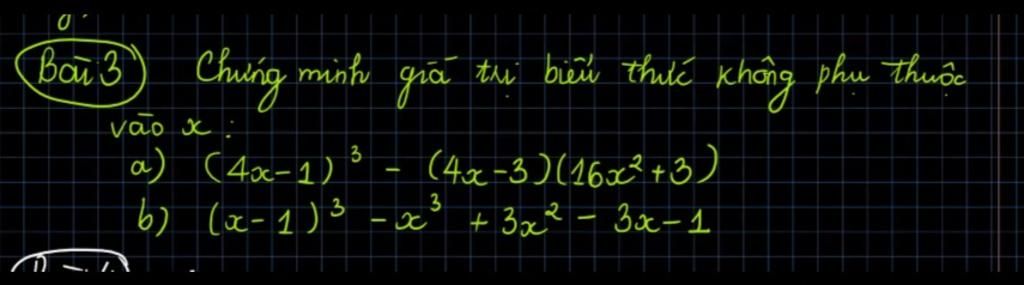 Bài 3 Chứng minh giá trị biểu thức không phụ thuộc
vào x :
a) (4x-1)³ - (4x-3)(16x²+3)
b) (x-1)³ - x³ + 3x² - 3x - 1